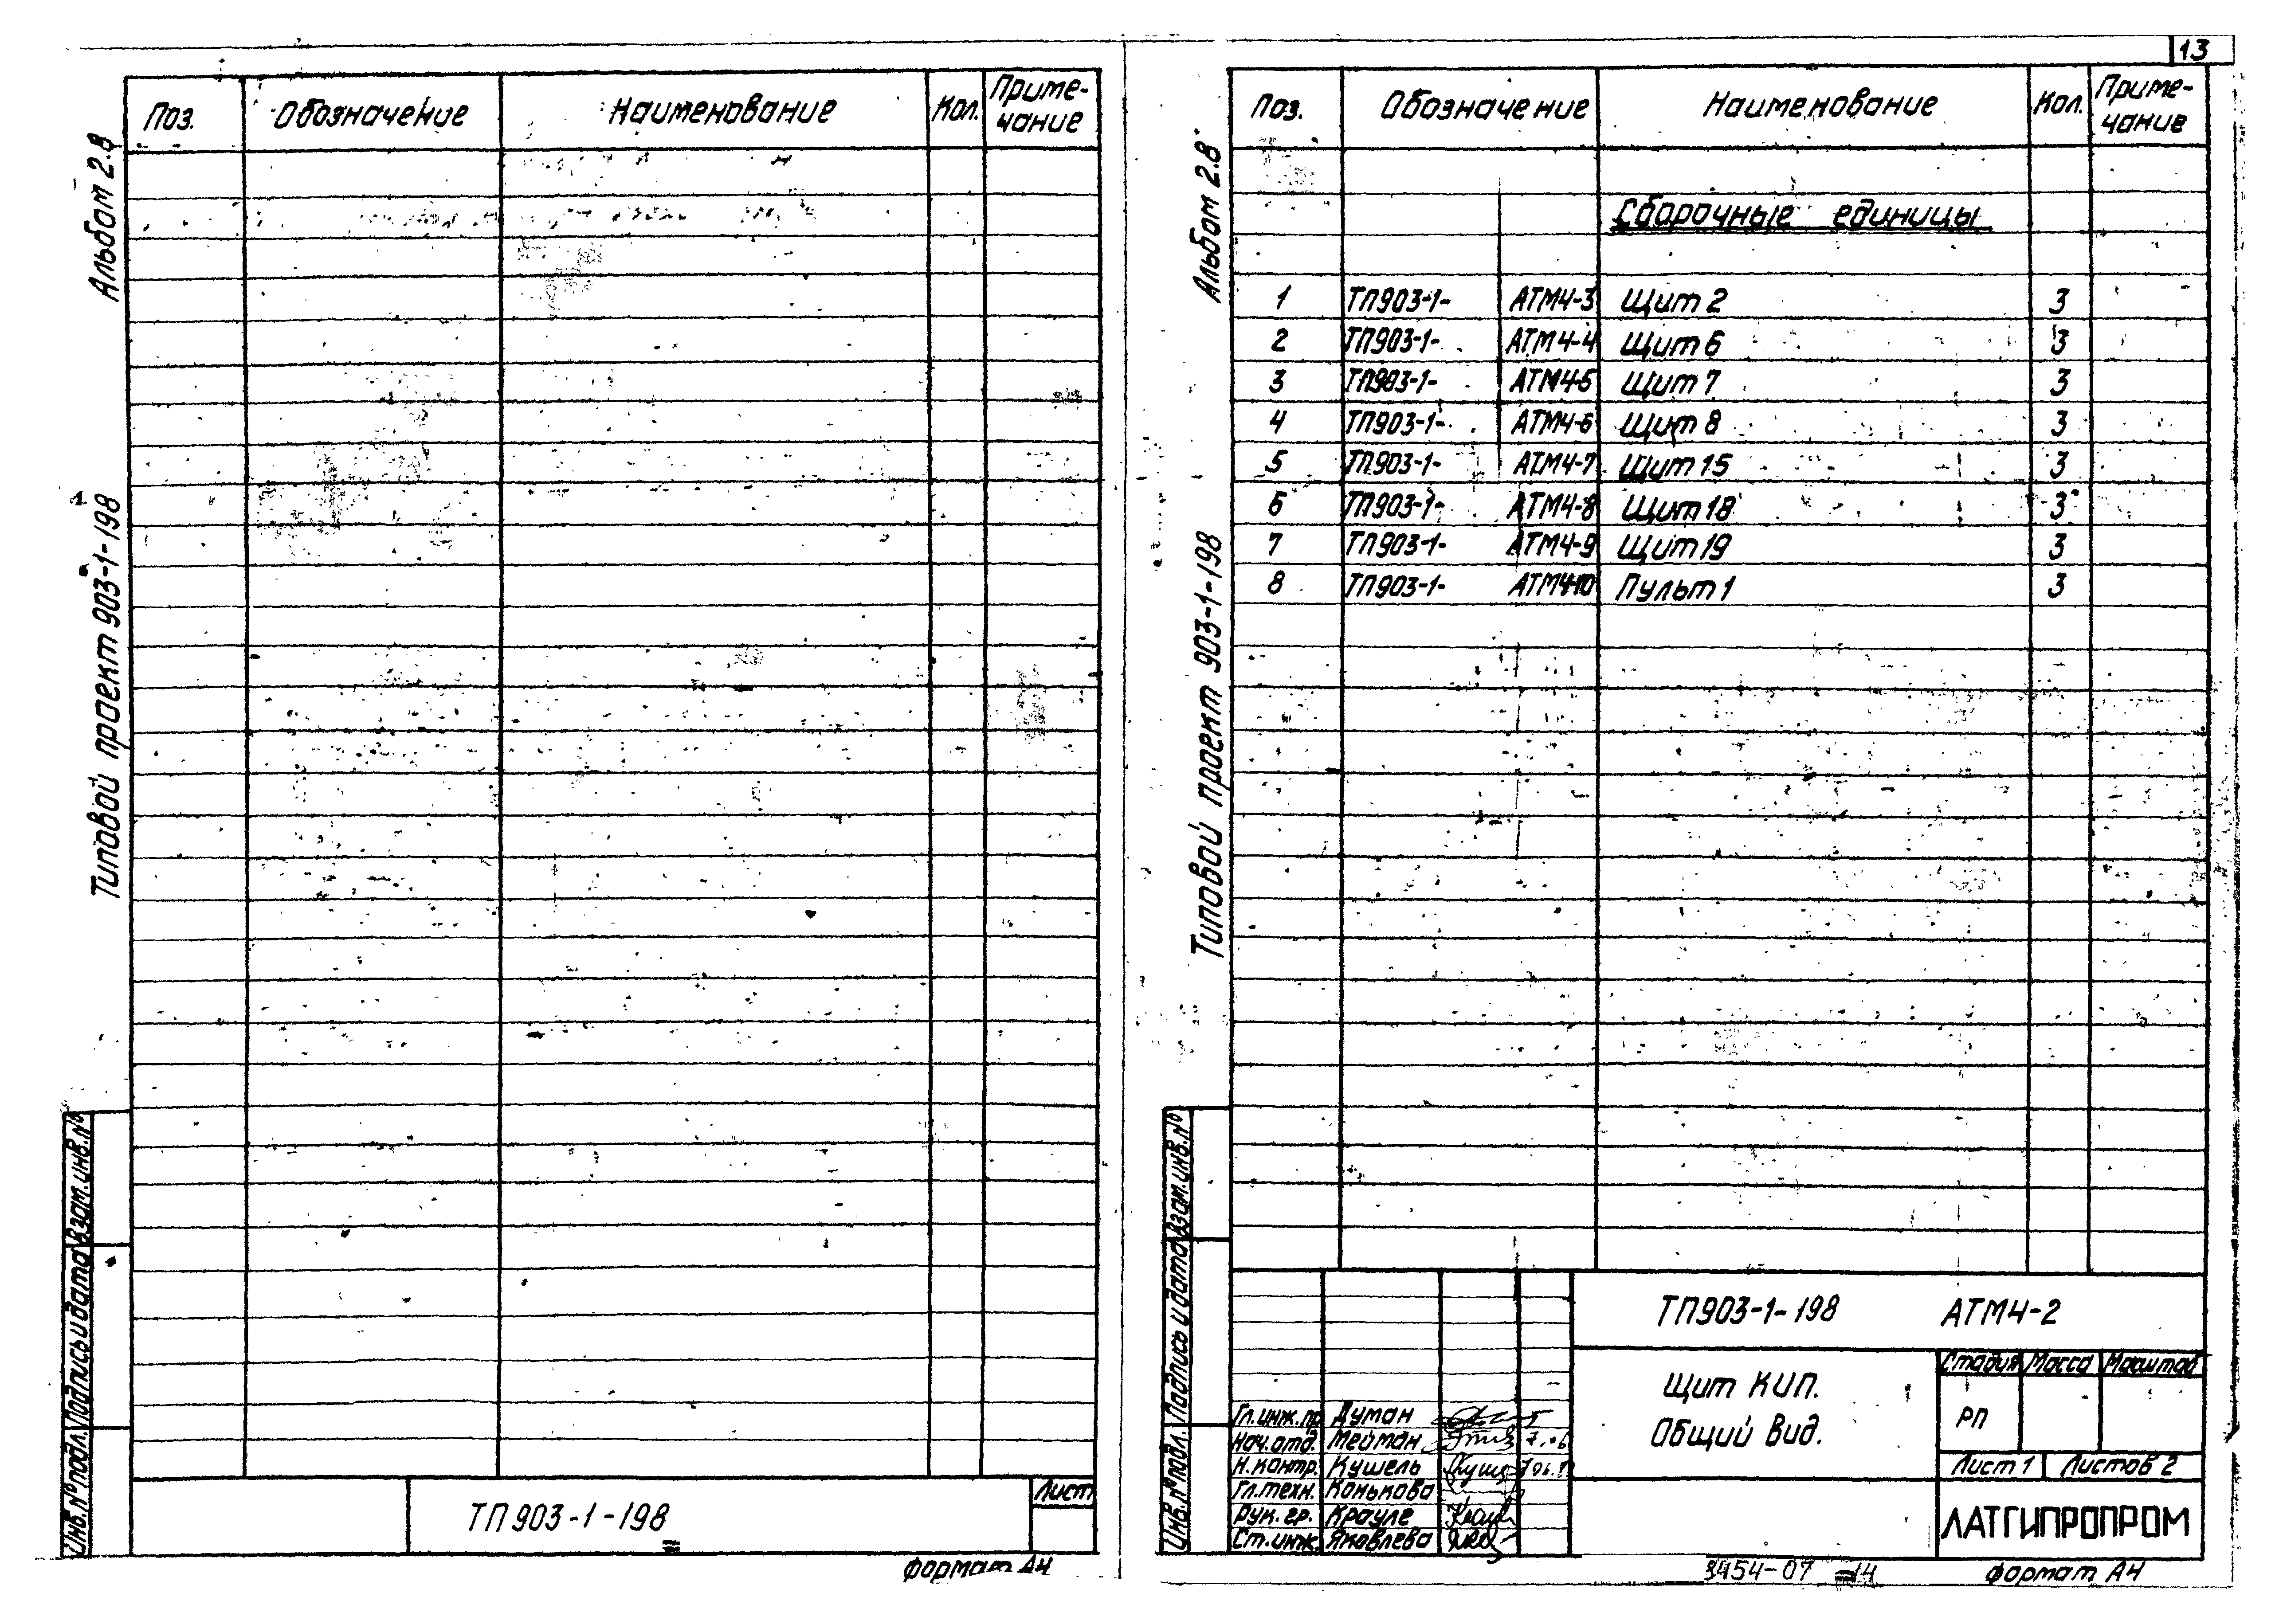 13
Поз. Обозначение Наименование Кол. Приме-
чание
Альбом 2.8
Типовой проект 903-1-198
Инв.№подл. Подпись и дата Взам.инв.№
ТП 903-1-198
Лист
формат А4
Поз. Обозначение Наименование Кол. Приме-
чание
Альбом 2.8
Типовой проект 903-1-198
Инв.№подл. Подпись и дата Взам.инв.№
Сборочные единицы
1 ТП903-1- АТМ4-3 Щит 2 3
2 ТП903-1- АТМ4-4 Щит 6 3
3 ТП903-1- АТМ4-5 Щит 7 3
4 ТП903-1- АТМ4-6 Щит 8 3
5 ТП903-1- АТМ4-7 Щит 15 3
6 ТП903-1- АТМ4-8 Щит 18 3
7 ТП903-1- АТМ4-9 Щит 19 3
8 ТП903-1- АТМ4-10 Пульт 1 3
ТП903-1-198 АТМ4-2
Щит КИП.
Общий вид.
Стадия Масса Масштаб
РП
Лист 1 Листов 2
ЛАТГИПРОПРОМ
Гл.инж.пр Думан
Нач.отд. Мейман
Н.контр. Кушель
Гл.техн. Конькова
Рук.гр. Крауле
Ст.инж. Яковлева
14
формат А4